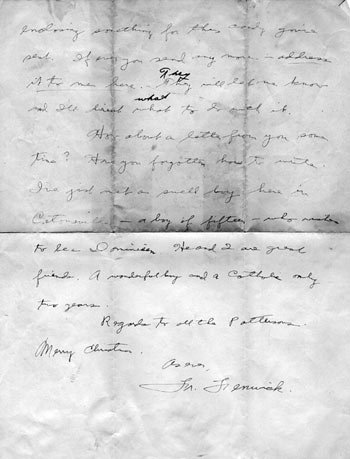 enclosing something for this candy you've
sent. If you send my more – address
it to me here. They will let me know
They
and I'll what to do with it.
what
How about a letter from you some
time? Have you forgotten how to write.
I've got just a swell boy here in
Catonsville – a boy of fifteen – who wants
to be a Dominican. He and I are great
friends. A wonderful boy and a Catholic only
two years.
Regards to all the Pattersons.
Merry Christmas.
As ever,
Fr. Fenwick.